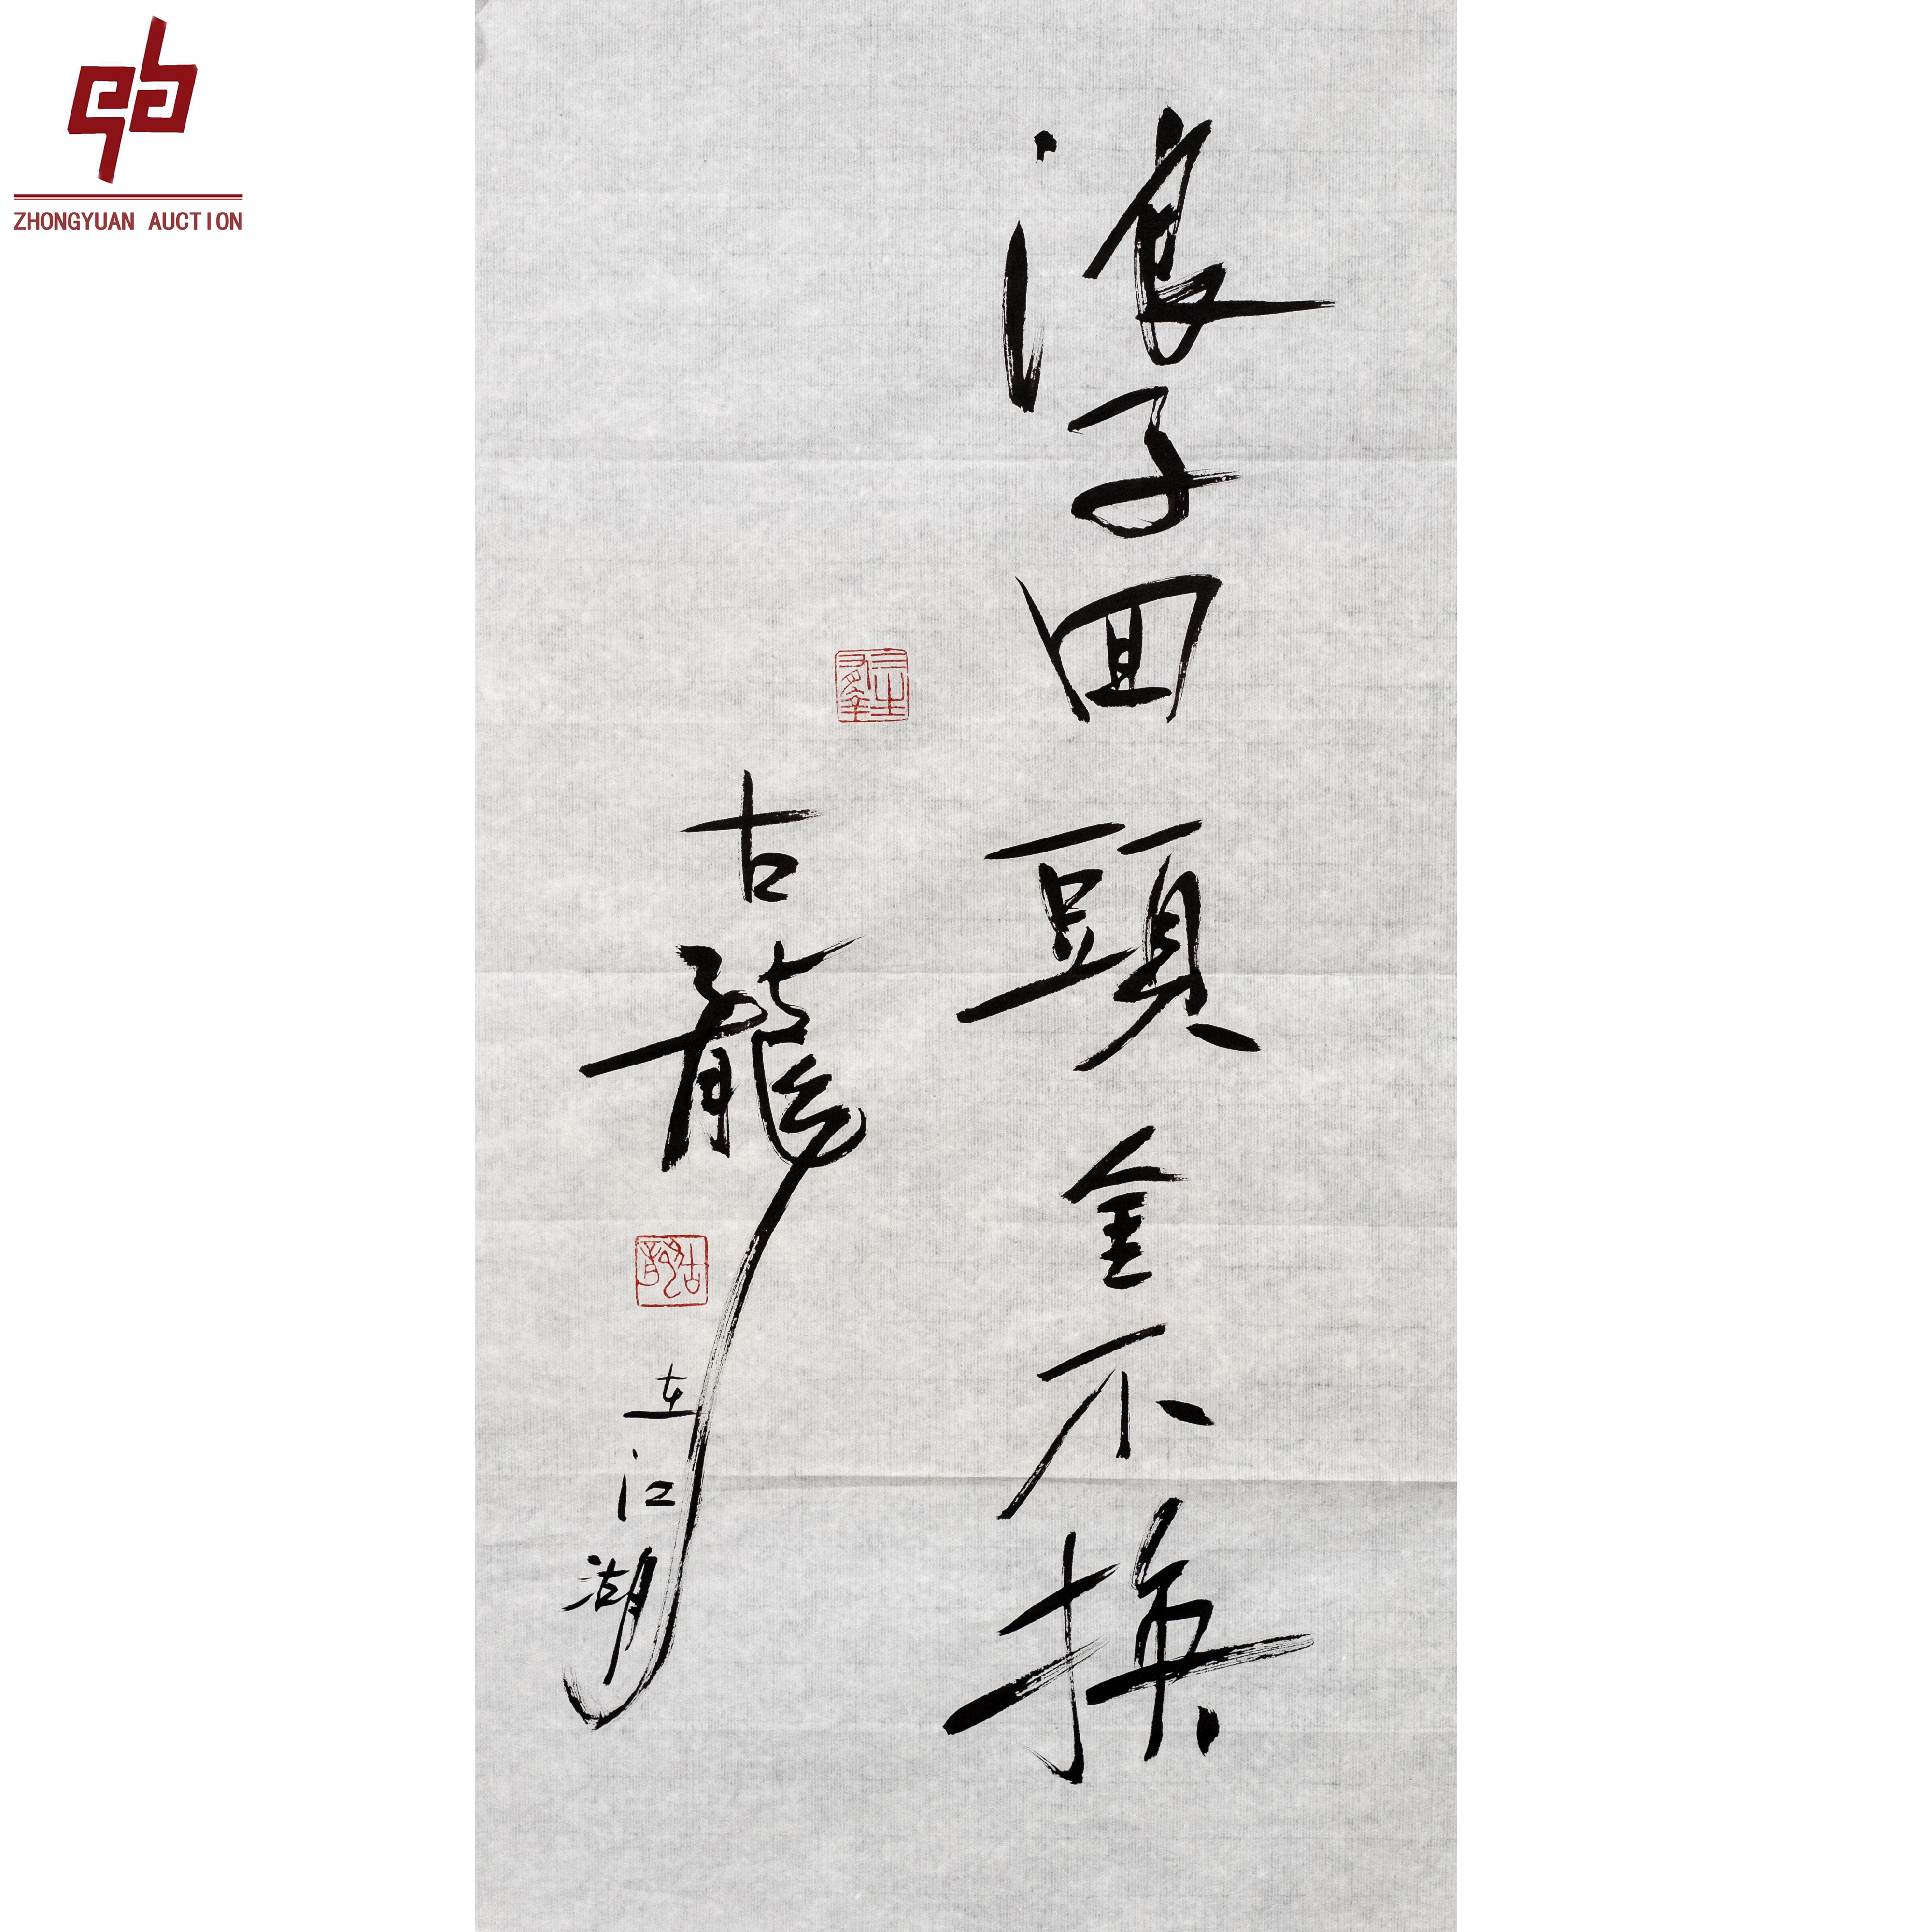 ZHONGYUAN AUCTION
浪子回頭金不換
古龍
在江湖